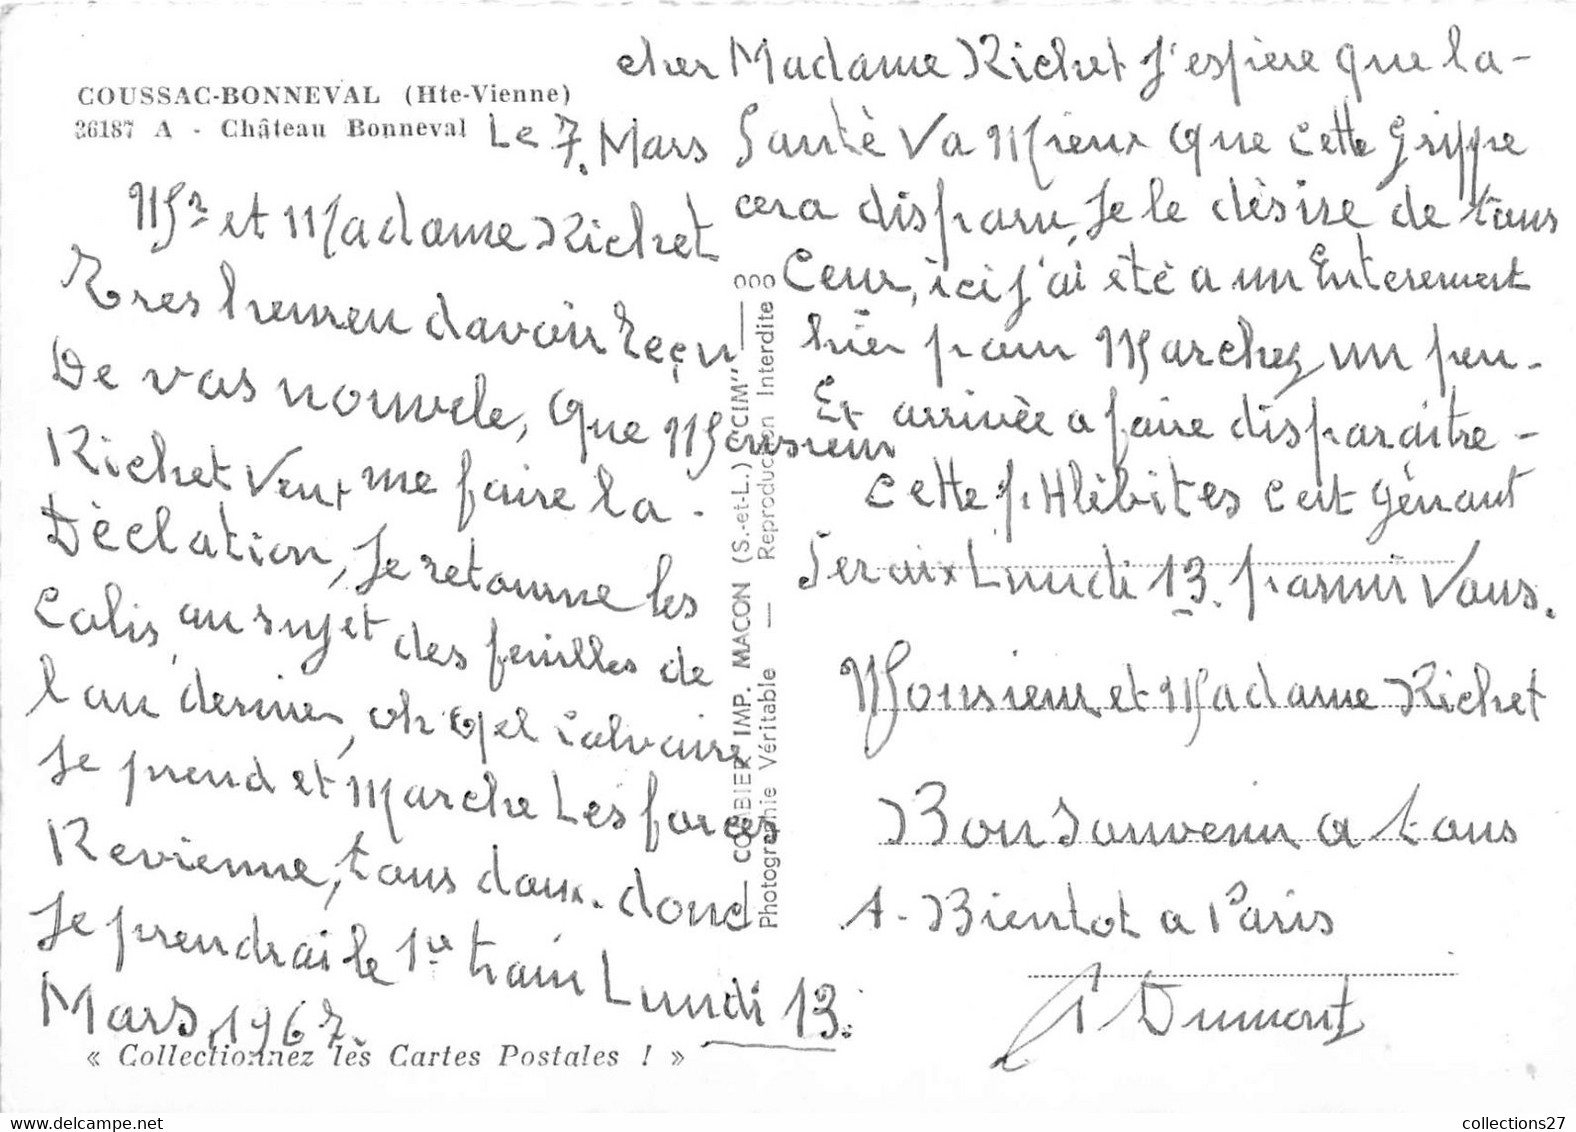 COUSSAC-BONNEVAL (Hte-Vienne)
26187 A - Château Bonneval
Le 7. Mars
Mr et Madame Richet
Tres heureu davoir reçu
De vos nouvele, que Monsieur
Richet Veux me faire la -
Dèclation, Je retourne les
Colis, au sujet des feuilles de
l'an dernier, oh Gel Calvaire
Je prend et Marche Les forces
Revienne, tous doux. donc
Je prendrai le 1er train Lundi 13.
Mars, 1967.
« Collectionnez les Cartes Postales ! »
COMBIER IMP. MACON (S.-et-L.) "CIM"
Photographie Véritable — Reproduction Interdite
cher Madame Richet J'espère que la -
Santè Va Mieux Que cette Grippe
cera disparu, Je le dèsire de tous
Ceur, ici J'ai étè a un Enterement
hier pour Marchez un peu -
Et arrivèe a faire disparaitre -
cette p.Hlèbites c'est gènant
Seraix Lundi 13. parmi Vous.
Monsieur et Madame Richet
Bon Souvenir a tous
A - Bientot a Paris
G Dumont
collections27